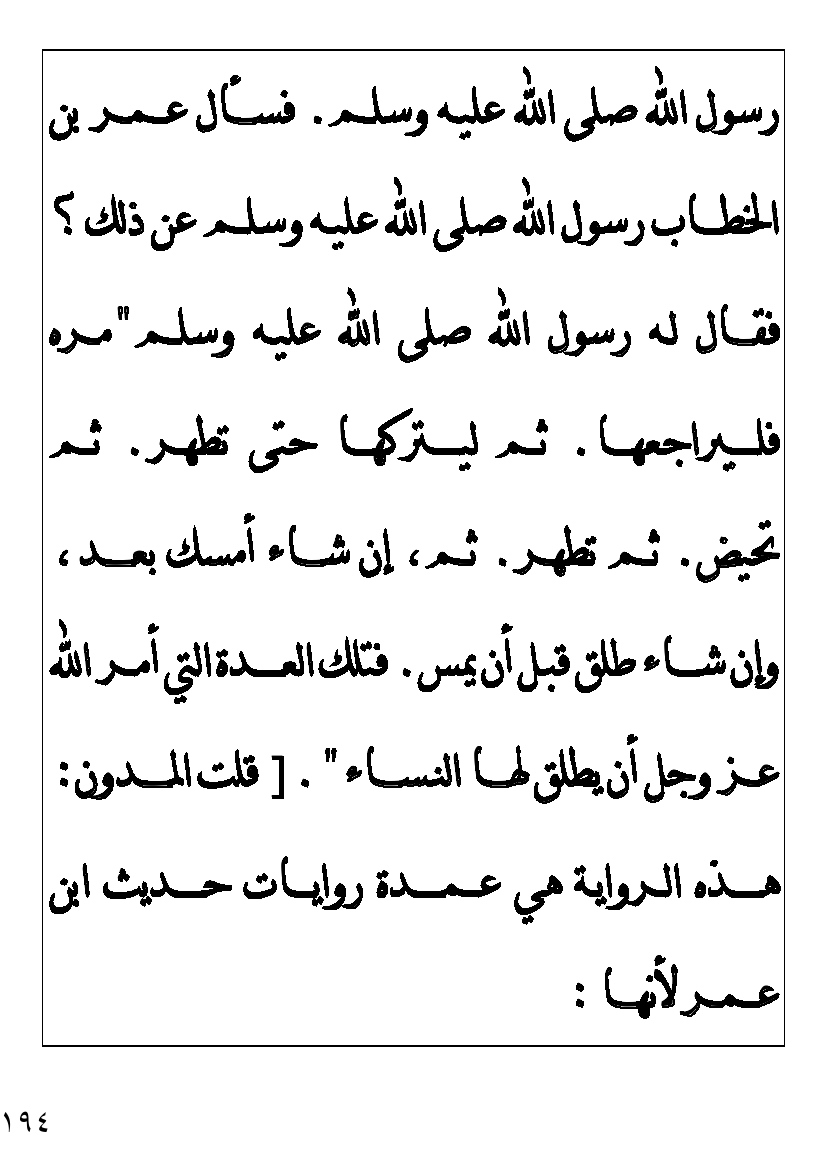 رسول الله صلى الله عليه وسلم. فسأل عمر بن
الخطاب رسول الله صلى الله عليه وسلم عن ذلك ؟
فقال له رسول الله صلى الله عليه وسلم "مره
فليراجعها . ثم ليتركها حتى تطهر. ثم
تحيض. ثم تطهر. ثم، إن شاء أمسك بعد ،
وإن شاء طلق قبل أن يمس. فتلك العدة التي أمر الله
عز وجل أن يطلق لها النساء " . [ قلت المدون:
هذه الرواية هي عمدة روايات حديث ابن
عمر لأنها :
١٩٤